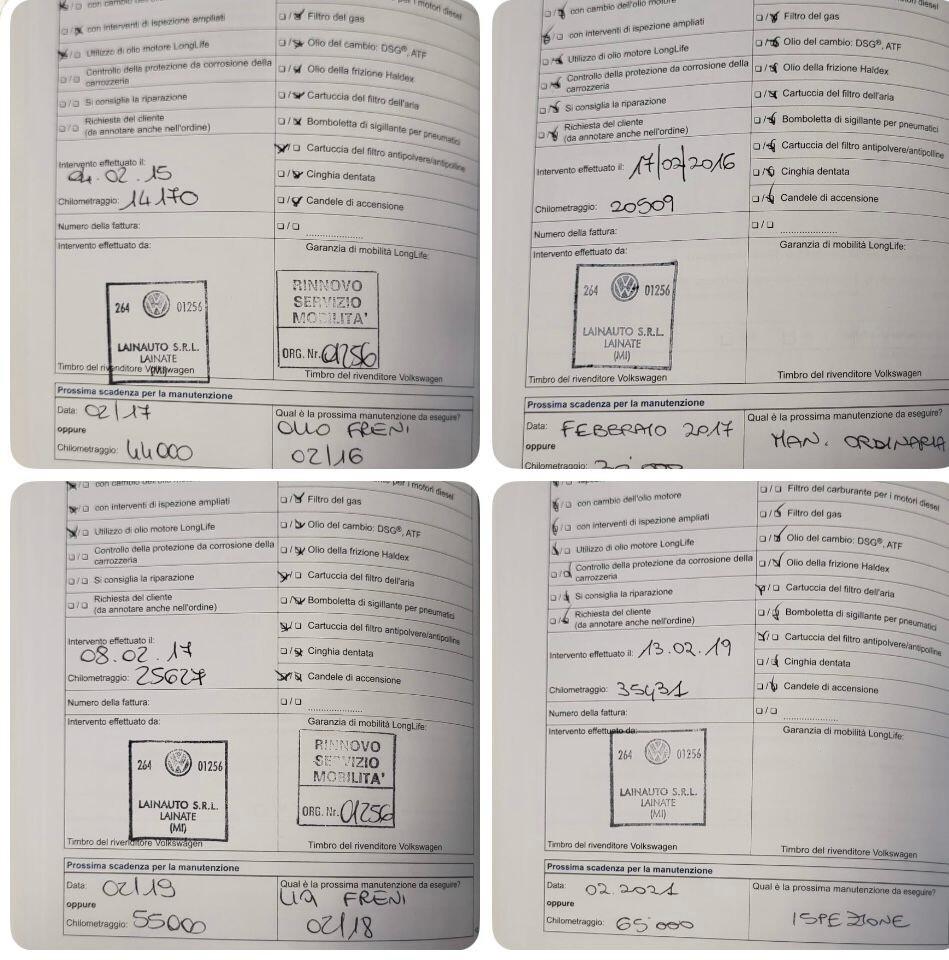 con cambio dell'olio
con interventi di ispezione ampliati
Utilizzo di olio motore LongLife
Controllo della protezione da corrosione della
carrozzeria
Si consiglia la riparazione
Richiesta del cliente
(da annotare anche nell'ordine)
i motori diesel
Filtro del gas
Olio del cambio: DSG®, ATF
Olio della frizione Haldex
Cartuccia del filtro dell'aria
Bomboletta di sigillante per pneumatici
Cartuccia del filtro antipolvere/antipolline
Cinghia dentata
Candele di accensione
Intervento effettuato il:
04.02.15
Chilometraggio: 14170
Numero della fattura:
Intervento effettuato da:
Garanzia di mobilità LongLife:
264 01256
LAINAUTO S.R.L.
LAINATE
(MI)
Timbro del rivenditore Volkswagen
RINNOVO
SERVIZIO
MOBILITA'
ORG. Nr. 01256
Timbro del rivenditore Volkswagen
Prossima scadenza per la manutenzione
Data: 02/17
oppure
Chilometraggio: 44000
Qual è la prossima manutenzione da eseguire?
OLIO FRENI
02/16
con cambio dell'olio motore
con interventi di ispezione ampliati
Utilizzo di olio motore LongLife
Controllo della protezione da corrosione della
carrozzeria
Si consiglia la riparazione
Richiesta del cliente
(da annotare anche nell'ordine)
diesel
Filtro del gas
Olio del cambio: DSG®, ATF
Olio della frizione Haldex
Cartuccia del filtro dell'aria
Bomboletta di sigillante per pneumatici
Cartuccia del filtro antipolvere/antipolline
Cinghia dentata
Candele di accensione
Intervento effettuato il: 17/02/2016
Chilometraggio: 20509
Numero della fattura:
Intervento effettuato da:
Garanzia di mobilità LongLife:
264 01256
LAINAUTO S.R.L.
LAINATE
(MI)
Timbro del rivenditore Volkswagen
Timbro del rivenditore Volkswagen
Prossima scadenza per la manutenzione
Data: FEBBRAIO 2017
oppure
Chilometraggio:
Qual è la prossima manutenzione da eseguire?
MAN. ORDINARIA
con cambio dell'olio motore
con interventi di ispezione ampliati
Utilizzo di olio motore LongLife
Controllo della protezione da corrosione della
carrozzeria
Si consiglia la riparazione
Richiesta del cliente
(da annotare anche nell'ordine)
per i motori diesel
Filtro del gas
Olio del cambio: DSG®, ATF
Olio della frizione Haldex
Cartuccia del filtro dell'aria
Bomboletta di sigillante per pneumatici
Cartuccia del filtro antipolvere/antipolline
Cinghia dentata
Candele di accensione
Intervento effettuato il:
08.02.17
Chilometraggio: 25627
Numero della fattura:
Intervento effettuato da:
Garanzia di mobilità LongLife:
264 01256
LAINAUTO S.R.L.
LAINATE
(MI)
Timbro del rivenditore Volkswagen
RINNOVO
SERVIZIO
MOBILITA'
ORG. Nr. 01256
Timbro del rivenditore Volkswagen
Prossima scadenza per la manutenzione
Data: 02/19
oppure
Chilometraggio: 55000
Qual è la prossima manutenzione da eseguire?
FRENI
02/18
con cambio dell'olio motore
con interventi di ispezione ampliati
Utilizzo di olio motore LongLife
Controllo della protezione da corrosione della
carrozzeria
Si consiglia la riparazione
Richiesta del cliente
(da annotare anche nell'ordine)
Filtro del carburante per i motori diesel
Filtro del gas
Olio del cambio: DSG®, ATF
Olio della frizione Haldex
Cartuccia del filtro dell'aria
Bomboletta di sigillante per pneumatici
Cartuccia del filtro antipolvere/antipolline
Cinghia dentata
Candele di accensione
Intervento effettuato il: 13.02.19
Chilometraggio: 35431
Numero della fattura:
Intervento effettuato da:
Garanzia di mobilità LongLife:
264 01256
LAINAUTO S.R.L.
LAINATE
(MI)
Timbro del rivenditore Volkswagen
Timbro del rivenditore Volkswagen
Prossima scadenza per la manutenzione
Data: 02.2021
oppure
Chilometraggio: 65'000
Qual è la prossima manutenzione da eseguire?
ISPEZIONE